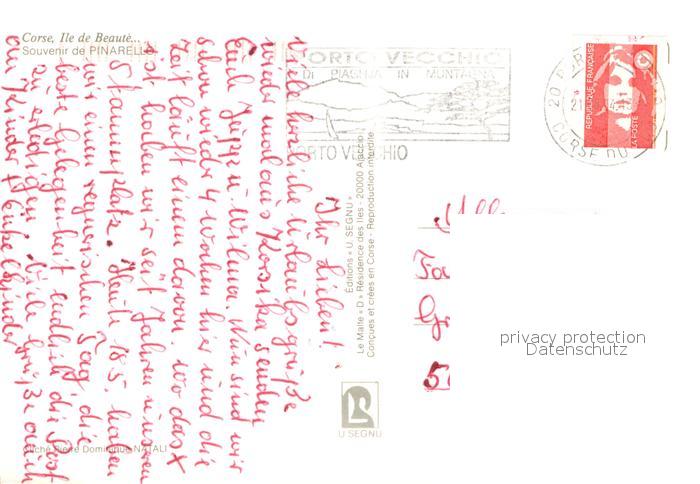 Corse, Ile de Beauté...
Souvenir de PINARELLO
PORTO VECCHIO
DI PIAGHJA IN MUNTAGNA
PORTO VECCHIO
20 POR
21
CORSE DU
RÉPUBLIQUE FRANÇAISE
LA POSTE
Ihr Lieben!
Viele herzliche Urlaubsgrüße
wieder mal aus Korsika senden
Euch Juppi u. Wilma. Nun sind wir
schon wieder 4 Wochen hier und die
Zeit läuft einem davon. Wo das x
ist haben wir seit Jahren unseren
Stammplatz. Heute 18.5. haben
wir einen regnerischen Tag, die
beste Gelegenheit endlich die Post
zu erledigen. Viele Grüße auch
an Kinder + Enkelkinder
Editions « U. SEGNU »
Le Malte « D » Résidence des Iles - 20000 Ajaccio
Conçues et crées en Corse - Reproduction interdite
U SEGNU
Cliché Pierre Dominique NATALI
Fa
G
5
privacy protection
Datenschutz